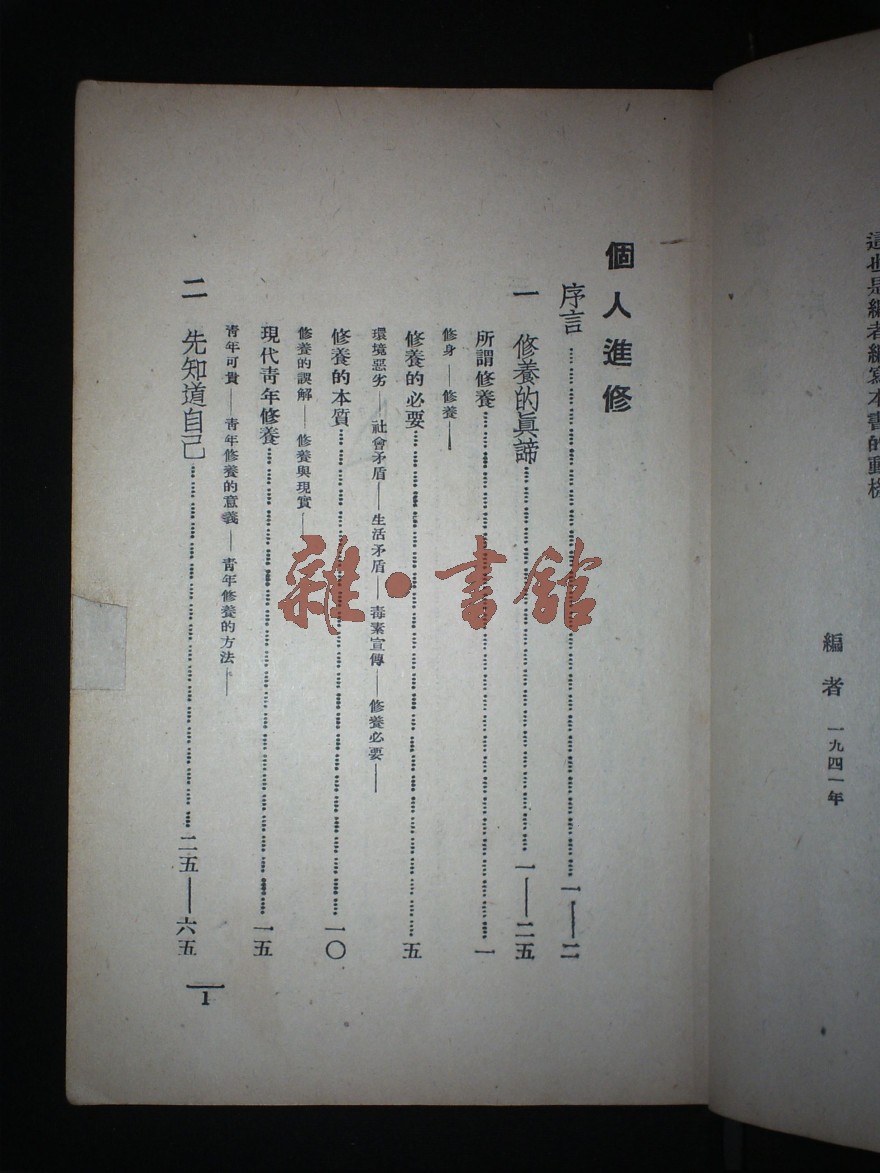 這也是編者編寫本書的動機
編者 一九四一年
個人進修
序言 一——二
一 修養的眞諦 一——二五
所謂修養 一
修身——修養——
修養的必要 五
環境惡劣——社會矛盾——生活矛盾——毒素宣傳——修養必要——
修養的本質 一〇
修養的誤解——修養與現實——
現代靑年修養 一五
靑年可貴——靑年修養的意義——靑年修養的方法——
二 先知道自己 二五——六五
1
雜·書館